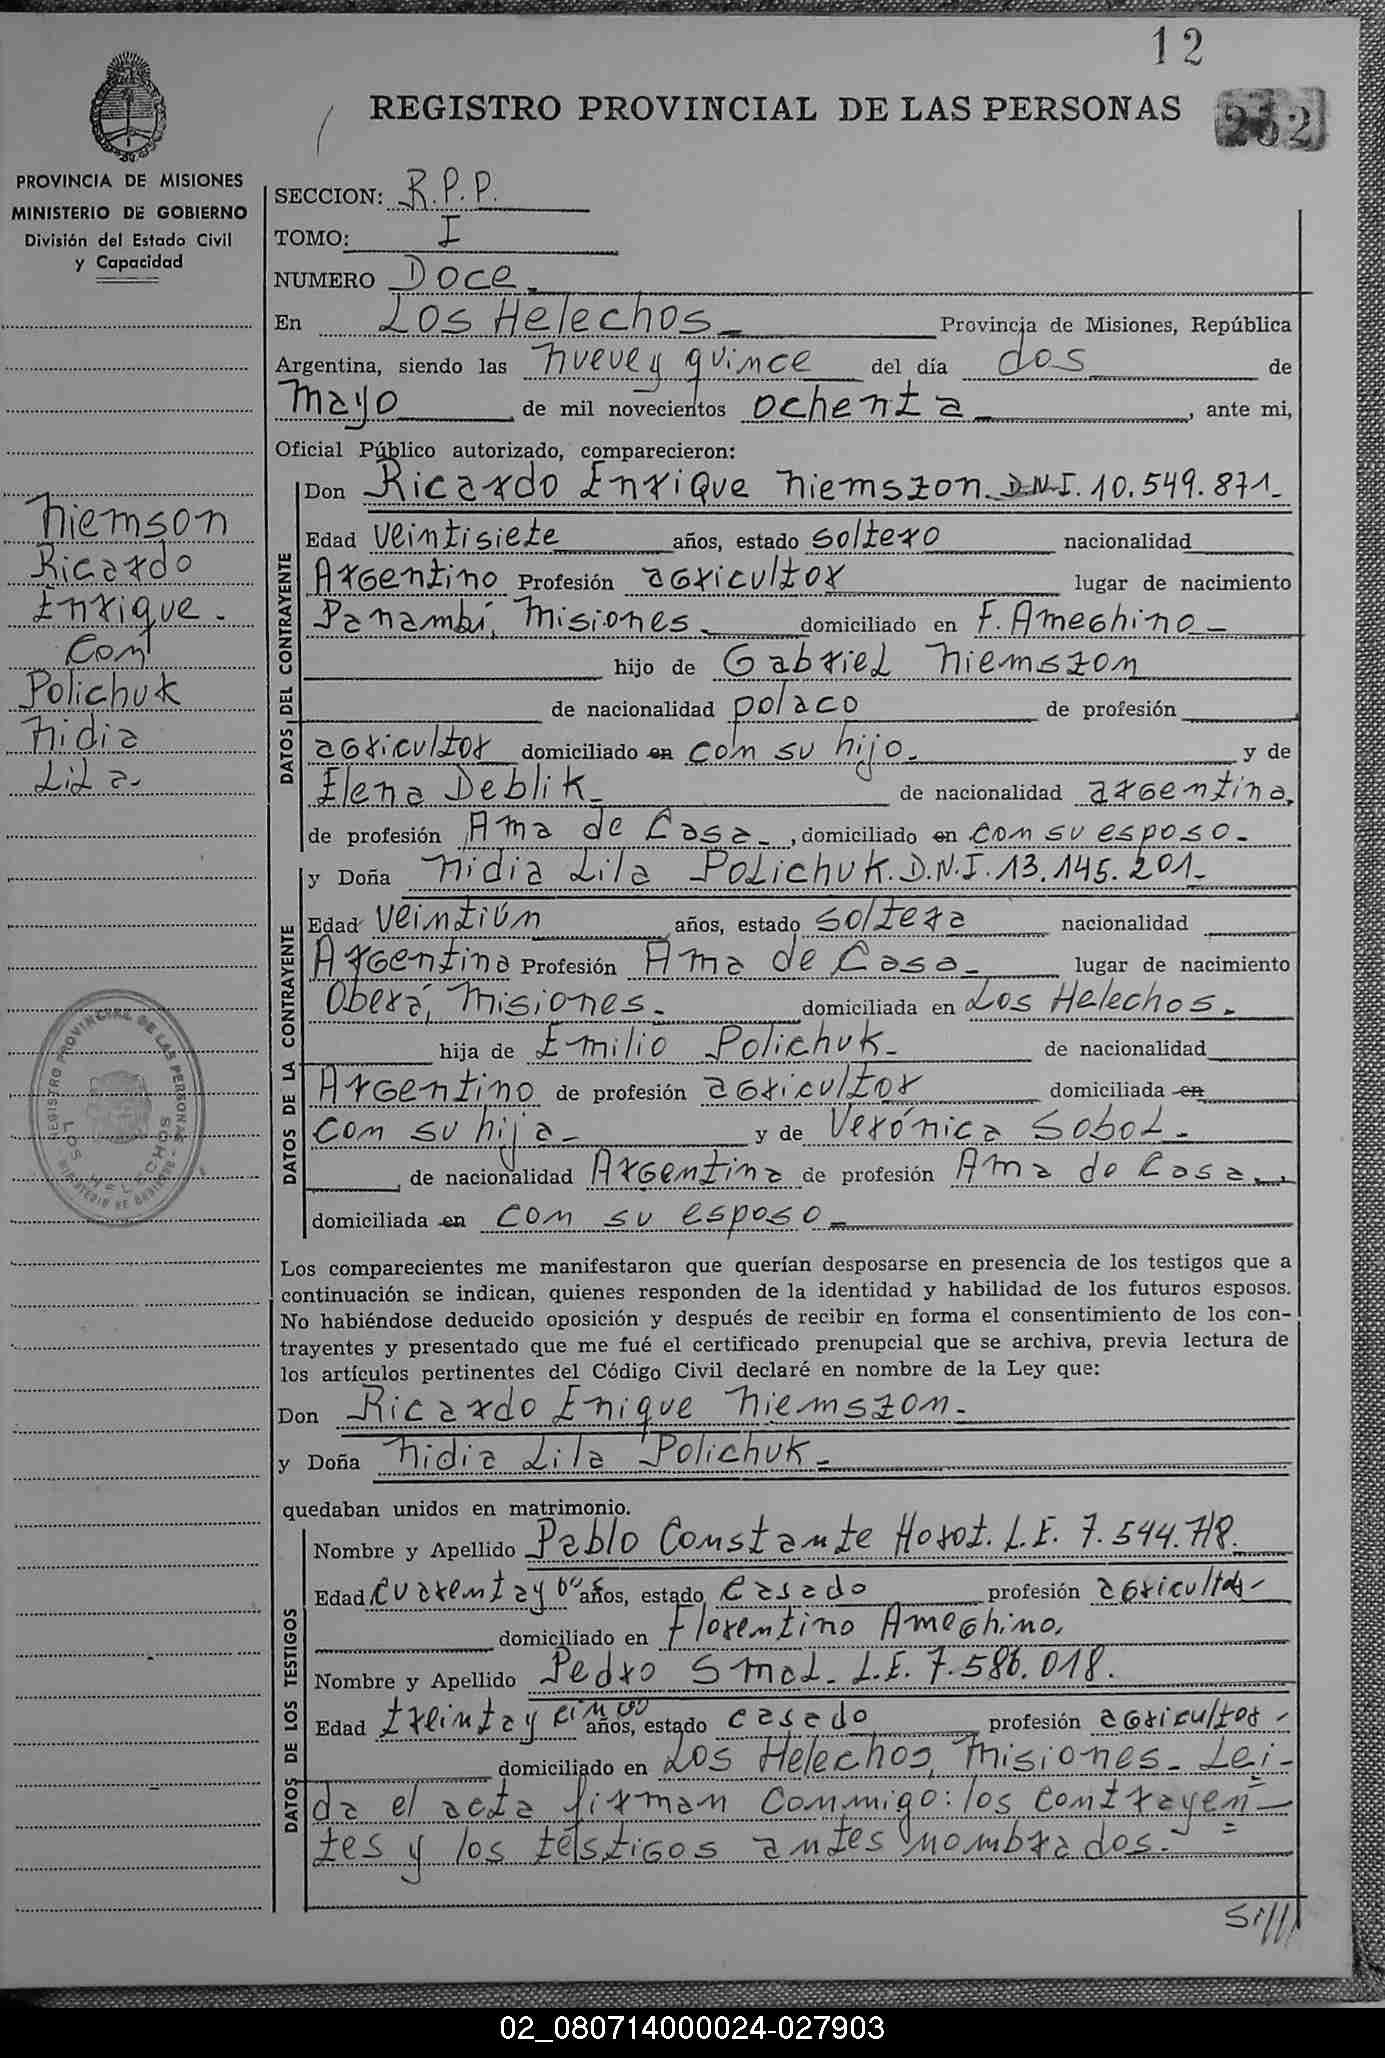 12
REGISTRO PROVINCIAL DE LAS PERSONAS
PROVINCIA DE MISIONES
MINISTERIO DE GOBIERNO
División del Estado Civil
y Capacidad
SECCION: R.P.P.
TOMO: I
NUMERO Doce.
En Los Helechos Provincia de Misiones, República
Argentina, siendo las nueve y quince del día dos de
mayo de mil novecientos ochenta, ante mi,
Oficial Público autorizado, comparecieron:
Niemson
Ricardo
Enrique.
Con
Polichuk
Nidia
Lila.
DATOS DEL CONTRAYENTE
Don Ricardo Enrique Niemszon. D.N.I. 10.549.871.
Edad veintisiete años, estado soltero nacionalidad
Argentino Profesión agricultor lugar de nacimiento
Panambí, Misiones. domiciliado en F. Ameghino
hijo de Gabriel Niemszon
de nacionalidad polaco de profesión
agricultor domiciliado en con su hijo. y de
Elena Deblik de nacionalidad argentina,
de profesión Ama de Casa., domiciliado en con su esposo.
DATOS DE LA CONTRAYENTE
y Doña Nidia Lila Polichuk. D.N.I. 13.145.201.
Edad veintiún años, estado soltera nacionalidad
Argentina Profesión Ama de Casa. lugar de nacimiento
Oberá, Misiones. domiciliada en Los Helechos.
hija de Emilio Polichuk. de nacionalidad
Argentino de profesión agricultor domiciliada en
con su hija. y de Verónica Sobol.
, de nacionalidad Argentina de profesión Ama de Casa.,
domiciliada en con su esposo.
REGISTRO PROVINCIAL DE LAS PERSONAS
LOS HELECHOS
MINISTERIO DE GOBIERNO
Los comparecientes me manifestaron que querían desposarse en presencia de los testigos que a
continuación se indican, quienes responden de la identidad y habilidad de los futuros esposos.
No habiéndose deducido oposición y después de recibir en forma el consentimiento de los con-
trayentes y presentado que me fué el certificado prenupcial que se archiva, previa lectura de
los artículos pertinentes del Código Civil declaré en nombre de la Ley que:
Don Ricardo Enique Niemszon.
y Doña Nidia Lila Polichuk.
quedaban unidos en matrimonio.
DATOS DE LOS TESTIGOS
Nombre y Apellido Pablo Constante Horot. L.E. 7.544.
Edad cuarenta y años, estado casado profesión agricultor
domiciliado en Florentino Ameghino.
Nombre y Apellido Pedro Smol. L.E. 7.586.018.
Edad treinta y cinco años, estado casado profesión agricultor
domiciliado en Los Helechos, Misiones. Lei-
da el acta firman conmigo: los contrayen
tes y los testigos antes nombrados.
02_080714000024-027903